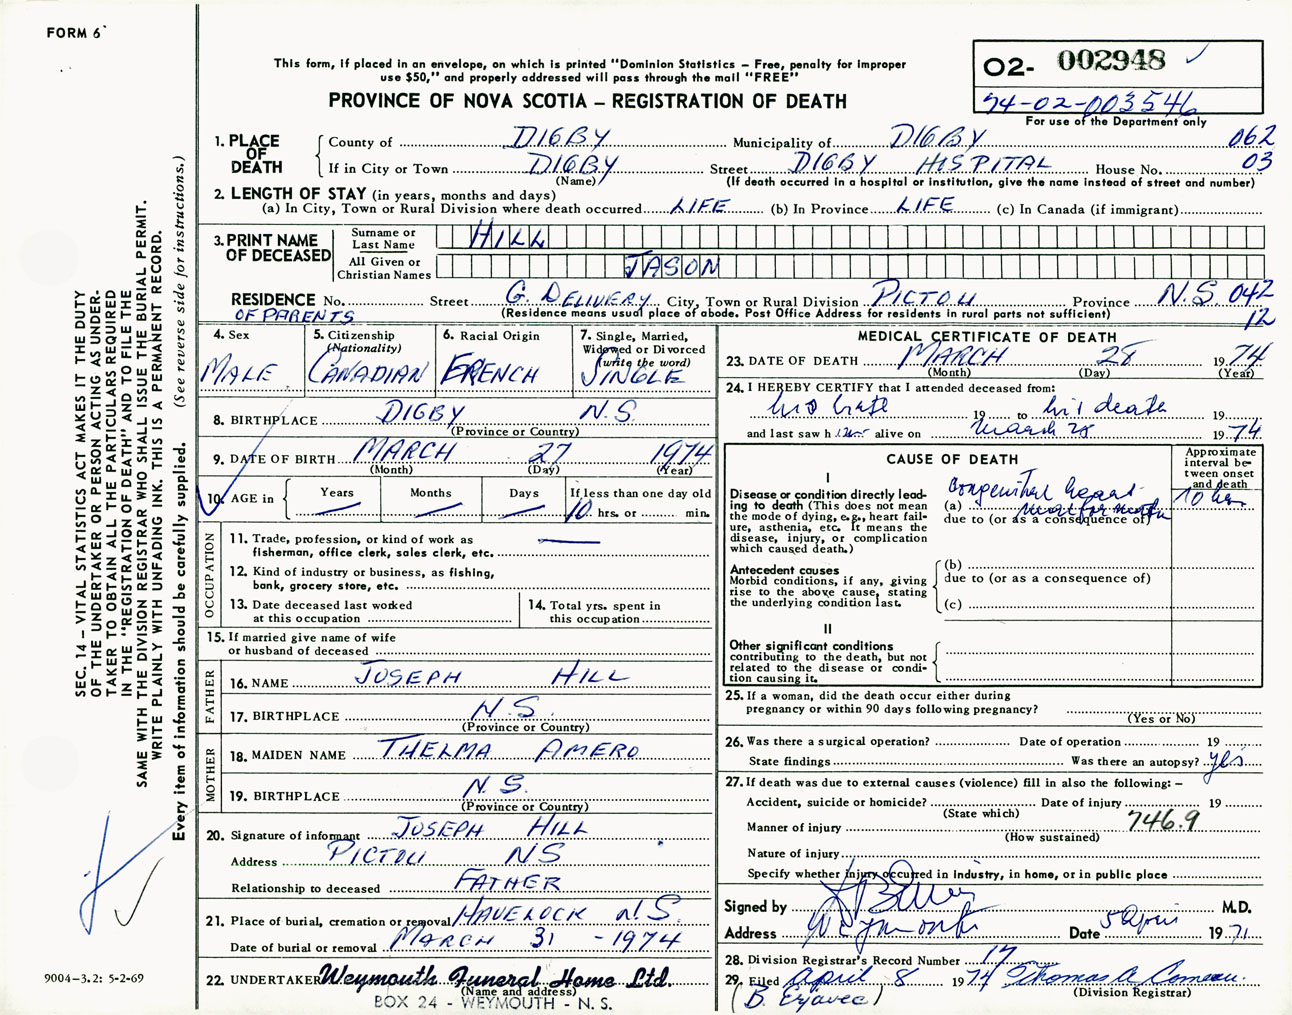 FORM 6
This form, if placed in an envelope, on which is printed "Dominion Statistics – Free, penalty for improper
use $50," and properly addressed will pass through the mail "FREE"
PROVINCE OF NOVA SCOTIA – REGISTRATION OF DEATH
02- 002948
74-02-003546
For use of the Department only
1. PLACE OF DEATH
County of DIGBY Municipality of DIGBY 062
If in City or Town DIGBY Street DIGBY HOSPITAL House No. 03
(Name) (If death occurred in a hospital or institution, give the name instead of street and number)
2. LENGTH OF STAY (in years, months and days)
(a) In City, Town or Rural Division where death occurred LIFE (b) In Province LIFE (c) In Canada (if immigrant)
3. PRINT NAME OF DECEASED
Surname or Last Name HILL
All Given or Christian Names JASON
RESIDENCE No. Street G. DELIVERY City, Town or Rural Division PICTOU Province N.S. 042
OF PARENTS (Residence means usual place of abode. Post Office Address for residents in rural parts not sufficient) 12
4. Sex MALE
5. Citizenship (Nationality) CANADIAN
6. Racial Origin FRENCH
7. Single, Married, Widowed or Divorced (write the word) SINGLE
8. BIRTHPLACE DIGBY N.S.
(Province or Country)
9. DATE OF BIRTH MARCH 27 1974
(Month) (Day) (Year)
10. AGE in Years — Months — Days — If less than one day old 10 hrs. or min.
OCCUPATION
11. Trade, profession, or kind of work as
fisherman, office clerk, sales clerk, etc. —
12. Kind of industry or business, as fishing,
bank, grocery store, etc.
13. Date deceased last worked
at this occupation
14. Total yrs. spent in
this occupation
15. If married give name of wife
or husband of deceased
FATHER
16. NAME JOSEPH HILL
17. BIRTHPLACE N.S.
(Province or Country)
MOTHER
18. MAIDEN NAME THELMA AMERO
19. BIRTHPLACE N.S.
(Province or Country)
20. Signature of informant JOSEPH HILL
Address PICTOU NS
Relationship to deceased FATHER
21. Place of burial, cremation or removal HAVELOCK N.S.
Date of burial or removal MARCH 31 - 1974
22. UNDERTAKER Weymouth Funeral Home Ltd.
(Name and address)
BOX 24 - WEYMOUTH - N. S.
MEDICAL CERTIFICATE OF DEATH
23. DATE OF DEATH MARCH 28 1974
(Month) (Day) (Year)
24. I HEREBY CERTIFY that I attended deceased from:
his birth 19 to his death 19
and last saw him alive on March 28 1974
CAUSE OF DEATH
Approximate interval between onset and death
I
Disease or condition directly leading to death (This does not
mean the mode of dying, e.g., heart failure, asthenia, etc. It means the
disease, injury, or complication
which caused death.)
Congenital heart
(a) malformation 10 hrs
due to (or as a consequence of)
Antecedent causes
Morbid conditions, if any, giving
rise to the above cause, stating
the underlying condition last.
(b)
due to (or as a consequence of)
(c)
II
Other significant conditions
contributing to the death, but not
related to the disease or condition causing it.
25. If a woman, did the death occur either during
pregnancy or within 90 days following pregnancy?
(Yes or No)
26. Was there a surgical operation? Date of operation 19
State findings Was there an autopsy? yes
27. If death was due to external causes (violence) fill in also the following: –
Accident, suicide or homicide? Date of injury 19
(State which)
Manner of injury 746.9
(How sustained)
Nature of injury
Specify whether injury occurred in industry, in home, or in public place
Signed by M.D.
Address Weymouth Date 5 April 1971
28. Division Registrar's Record Number 17
29. Filed April 8 1974 Thomas A. Comeau
(Division Registrar)
SEC. 14 – VITAL STATISTICS ACT MAKES IT THE DUTY
OF THE UNDERTAKER OR PERSON ACTING AS UNDER-
TAKER TO OBTAIN ALL THE PARTICULARS REQUIRED
IN THE "REGISTRATION OF DEATH" AND TO FILE THE
SAME WITH THE DIVISION REGISTRAR WHO SHALL ISSUE THE BURIAL PERMIT.
WRITE PLAINLY WITH UNFADING INK. THIS IS A PERMANENT RECORD.
Every item of information should be carefully supplied. (See reverse side for instructions.)
9004–3.2: 5-2-69